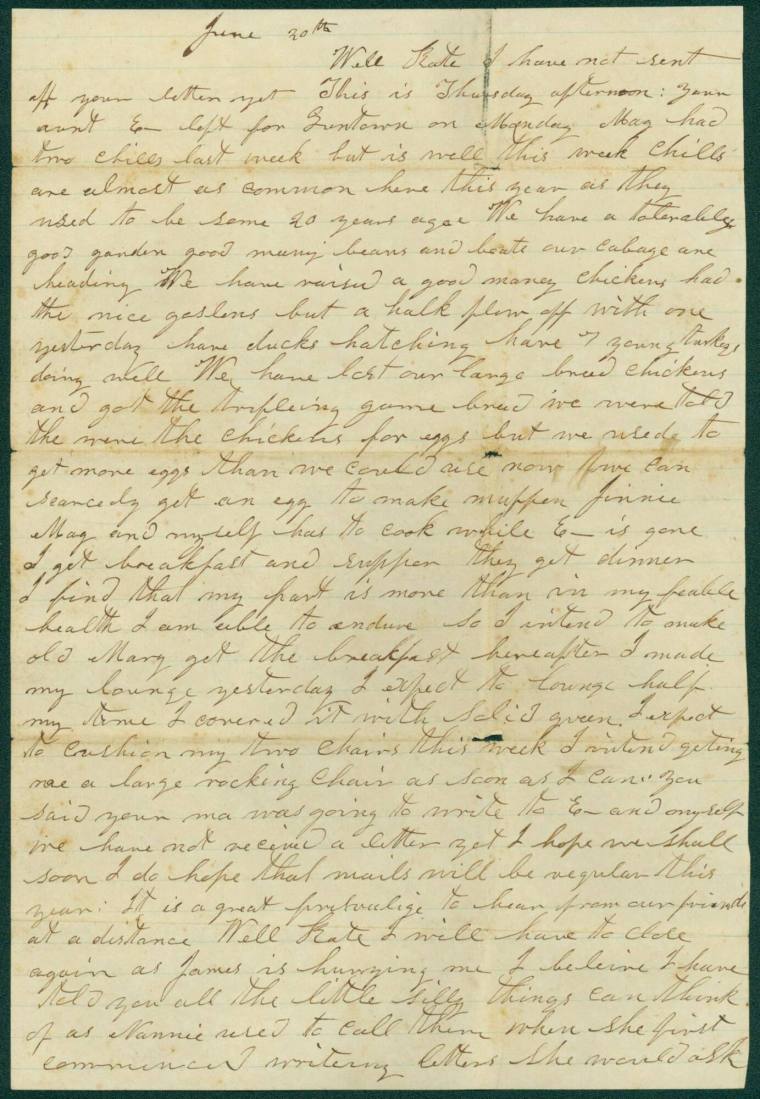 June 20th
Well Kate I have not sent
off your letter yet This is Thursday afternoon: your
aunt E— left for Guntown on Monday Mag had
two chills last week but is well this week Chills
are almost as common here this year as they
used to be some 20 years agoe We have a tolerabley
good garden good many beans and beats our cabage are
heading We have raised a good maney chickens had
the nice goslens but a halk flew off with one
yesterday have ducks hatching have 7 young turkeys
doing well We have lost our large breed chickens
and got the trifleing game breed we were told
the were the chickens for eggs but we used to
get more eggs than we could use now we can
scarcedly get an egg to make muffen Jinnie
Mag and myself has to cook while E— is gone
I get breakfast and supper they get dinner
I find that my part is more than in my feable
health I am able to endure so I intend to make
old Mary get the breakfast hereafter I made
my lounge yesterday I expect to lounge half
my time I covered it with solid green. I expect
to cushion my two chairs this week I intend geting
me a large rocking chair as soon as I can: you
said your ma was going to write to E— and myself
we have not received a letter yet I hope we shall
soon I do hope that mails will be regular this
year: It is a great to hear from our friends
at a distance Well Kate I will have to close
again as James is hurrying me I beleive I have
told you all the little silly things can think
of as Nannie used to call them when she first
commenced writing letters she would ask